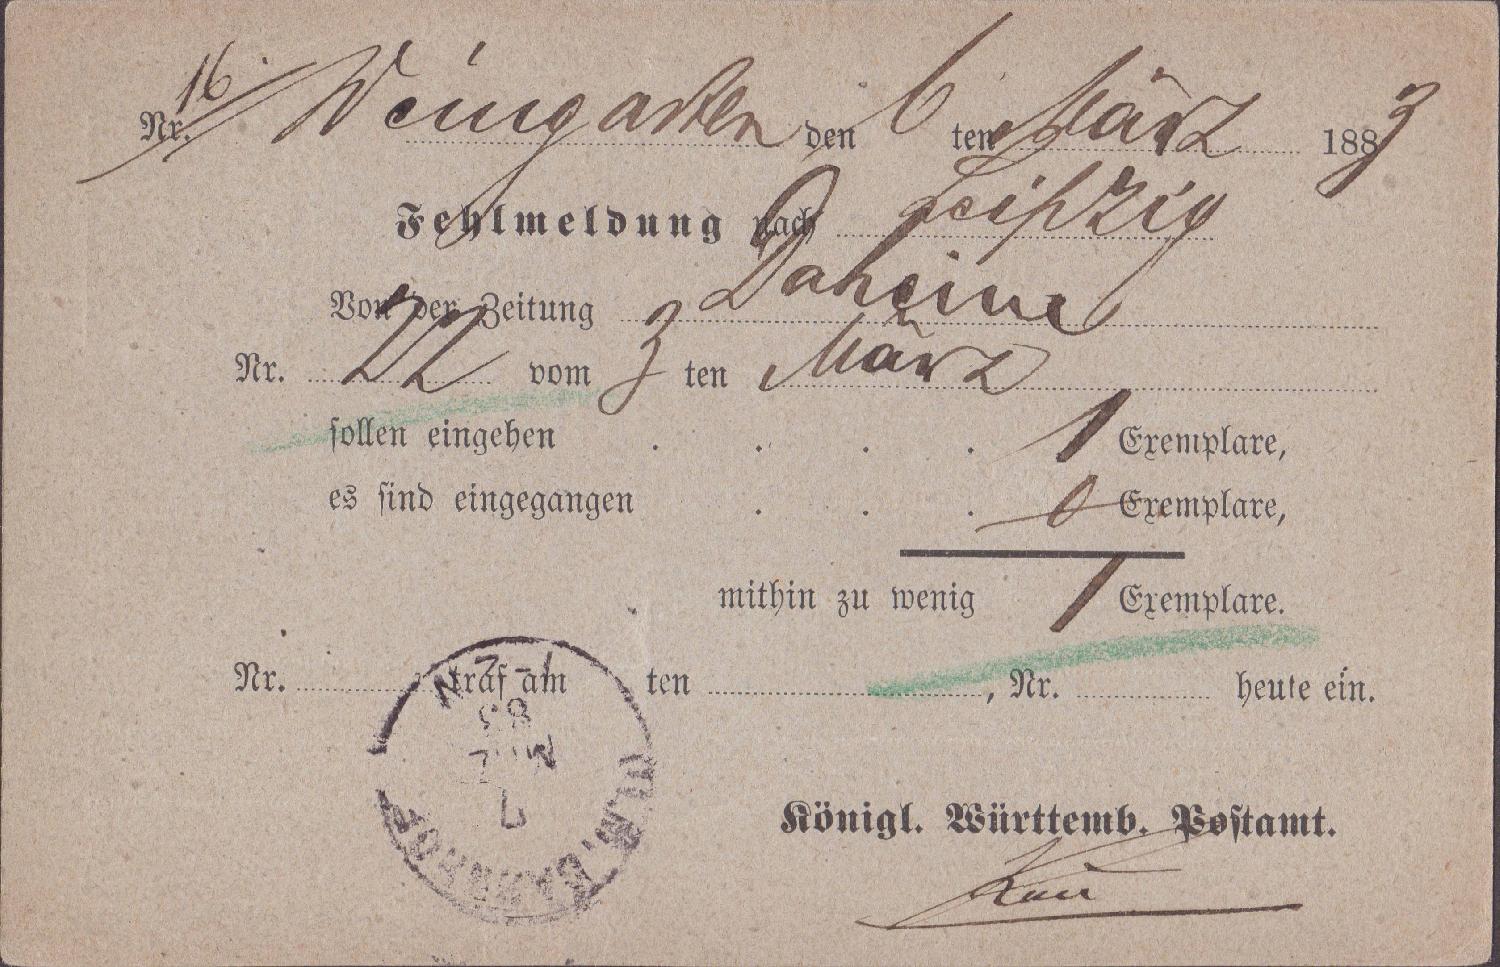 Nr. 16. Weingarten den 6 ten März 1883
Fehlmeldung nach Leipzig
Von der Zeitung Daheim
Nr. 22 vom 3 ten März
sollen eingehen . . . . 1 Exemplare,
es sind eingegangen . . . 0 Exemplare,
mithin zu wenig 1 Exemplare.
Nr. traf am ten , Nr. heute ein.
Königl. Württemb. Postamt.
ULM. BAHNHOF